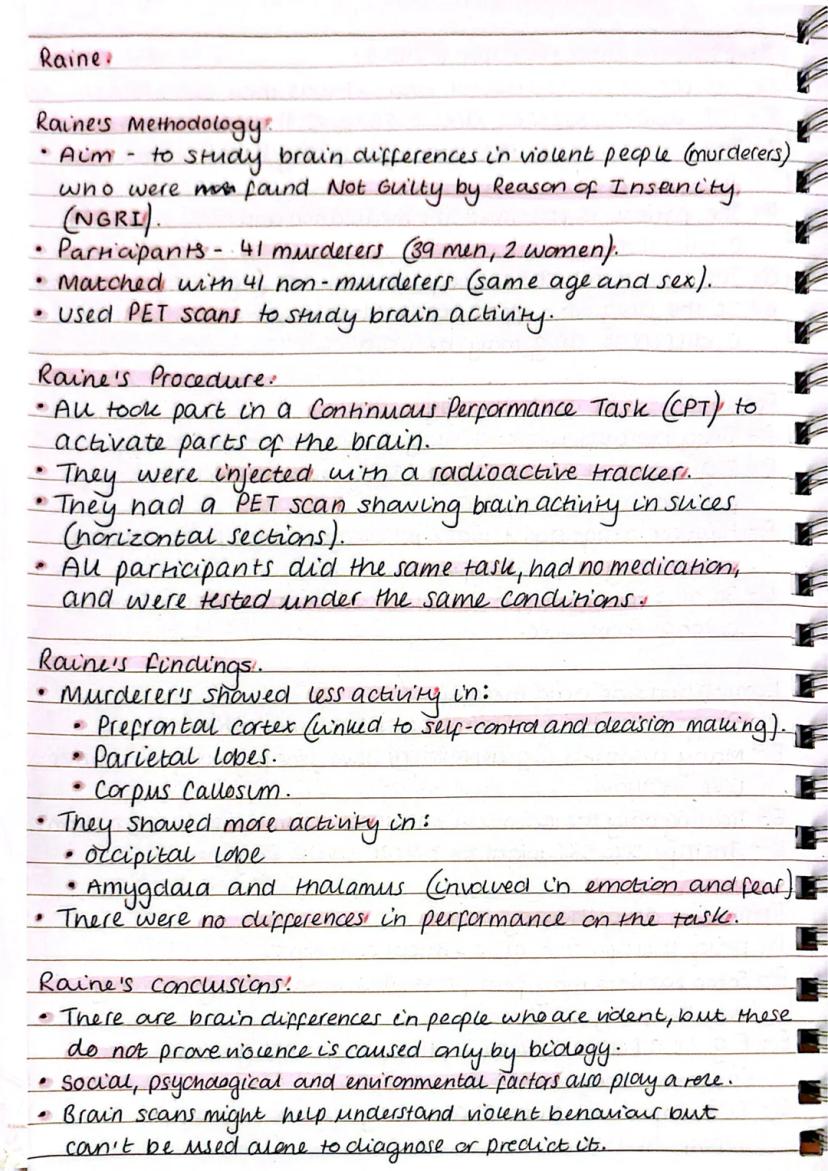 Raine.
Raine's Methodology.
• Aim - to study brain differences in violent people (murderers)
who were found Not Guilty by Reason of Insanity
(NGRI).
• Participants - 41 murderers (39 men, 2 women).
• Matched with 41 non-murderers (same age and sex).
• Used PET scans to study brain activity.
Raine's Procedure.
• All took part in a Continuous Performance Task (CPT) to
activate parts of the brain.
• They were injected with a radioactive tracker.
• They had a PET scan showing brain activity in slices
(horizontal sections).
• All participants did the same task, had no medication,
and were tested under the same conditions.
Raine's findings.
• Murderer's showed less activity in:
• Prefrontal cortex (linked to self-control and decision making).
• Parietal lobes.
• Corpus Callosum.
• They showed more activity in:
• Occipital lobe
• Amygdala and thalamus (involved in emotion and fear)
• There were no differences in performance on the task.
Raine's conclusions.
• There are brain differences in people who are violent, but these
do not prove violence is caused only by biology.
• Social, psychological and environmental factors also play a role.
• Brain scans might help understand violent behaviour but
can't be used alone to diagnose or predict it.